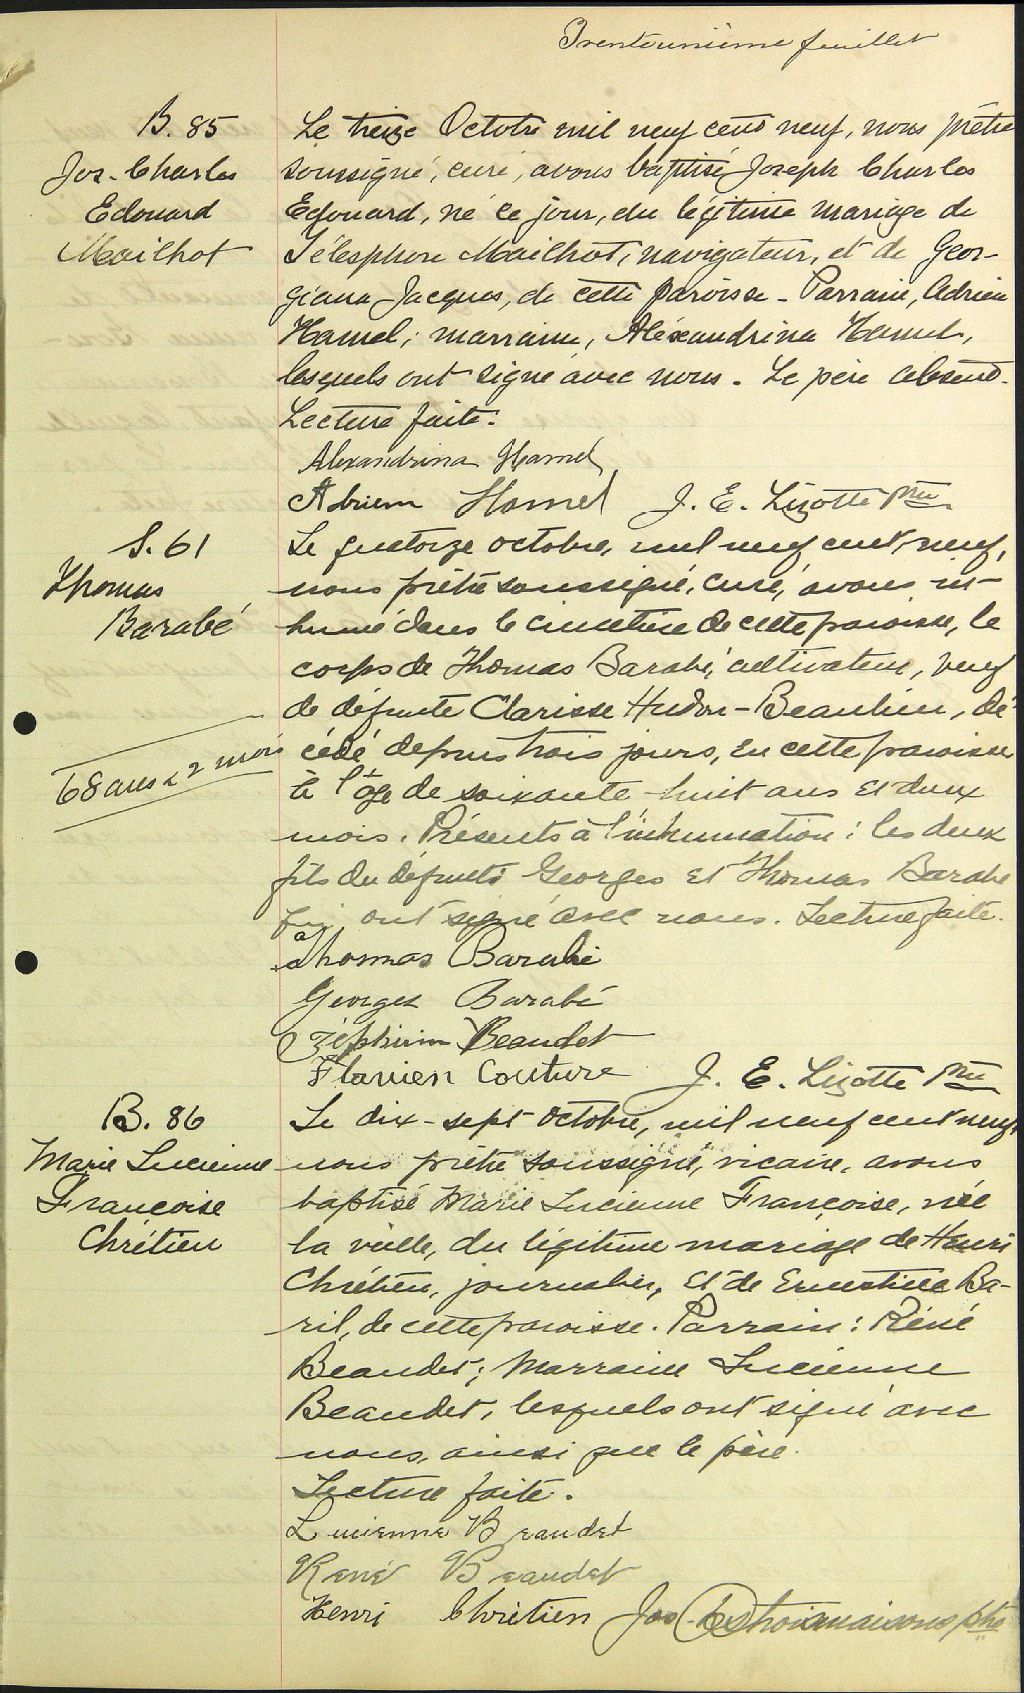 Trenteunième feuillet
B. 85
Jos-Charles
Edouard
Mailhot
Le treize Octobre mil neuf cent neuf, nous prêtre
soussigné, curé, avons baptisé Joseph Charles
Edouard, né ce jour, du légitime mariage de
Télesphore Mailhot, navigateur, et de Geor-
giana Jacques, de cette paroisse - Parrain, Adrien
Hamel; marraine, Aléxandrina Hamel,
lesquels ont signé avec nous. Le père absent.
Lecture faite.
Alexandrina Hamel
Adrien Hamel J. E. Lizotte Ptre
S. 61
Thomas
Barabé
68 ans & 2 mois
Le quatorze octobre, mil neuf cent neuf,
nous prêtre soussigné, curé, avons in-
humé dans le cimetière de cette paroisse, le
corps de Thomas Barabé, cultivateur, veuf
de défunte Clarisse Hudon-Beaulieu, dé-
cédé depuis trois jours, en cette paroisse
à l'âge de soixante-huit ans et deux
mois. Présents à l'inhumation: les deux
fils du défunt Georges et Thomas Barabé
qui ont signé avec nous. Lecture faite.
Thomas Barabé
Georges Barabé
Zéphirin Beaudet
Flavien Couture J. E. Lizotte Ptre
B. 86
Marie Lucienne
Françoise
Chrétien
Le dix-sept octobre, mil neuf cent neuf,
nous prêtre soussigné, vicaire, avons
baptisé Marie Lucienne Françoise, née
la veille, du légitime mariage de Henri
Chrétien, journalier, et de Ernestine Ba-
ril, de cette paroisse. Parrain: Réné
Beaudet; Marraine Lucienne
Beaudet, lesquels ont signé avec
nous, ainsi que le père.
Lecture faite.
Lucienne Beaudet
René Beaudet
Henri Chrétien Jos Destroismaisons ptre